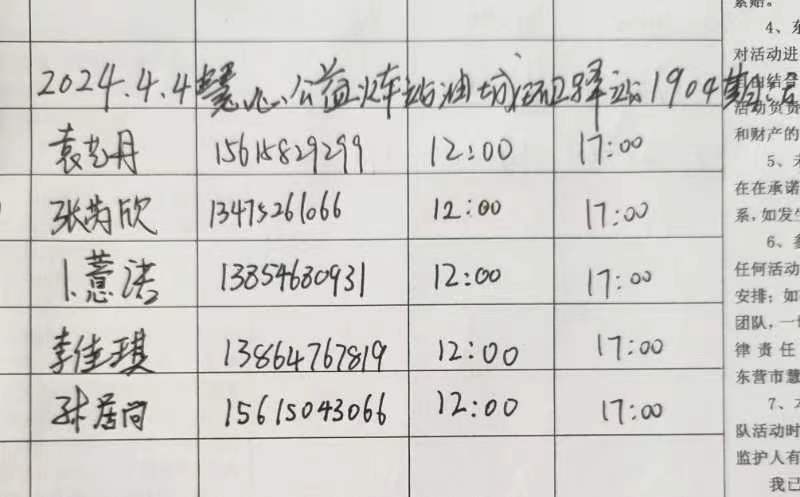 2024.4.4慧心公益火车站油城环卫驿站1904期
袁艺丹 15615829299 12:00 17:00
张芮欣 13475261066 12:00 17:00
卜薏涛 13854680931 12:00 17:00
李佳琪 13864767819 12:00 17:00
张居尚 15615043066 12:00 17:00
索赔。
4、东
对活动进
结合
活动负责
和财产的
5、未
在在承诺
系,如发生
6、参
任何活动
安排;如
团队,一切
律责任
东营市慧
7、本
队活动时
监护人有
我已